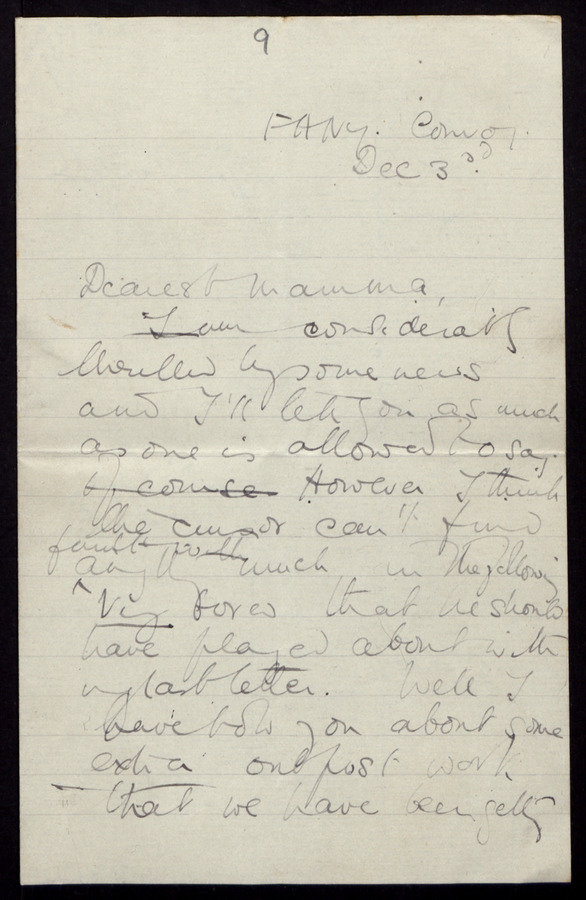 9
FANY. Convoy.
Dec 3rd.
Dearest Mamma,
I am considerably
thrilled by some news
and I'll tell you as much
as one is allowed to say.
Of course However I think
the censor can't find
fault with
any much in the following
Very bored that he should
have played about with
my last letter. Well I
have told you about some
extra outpost work
that we have been getting